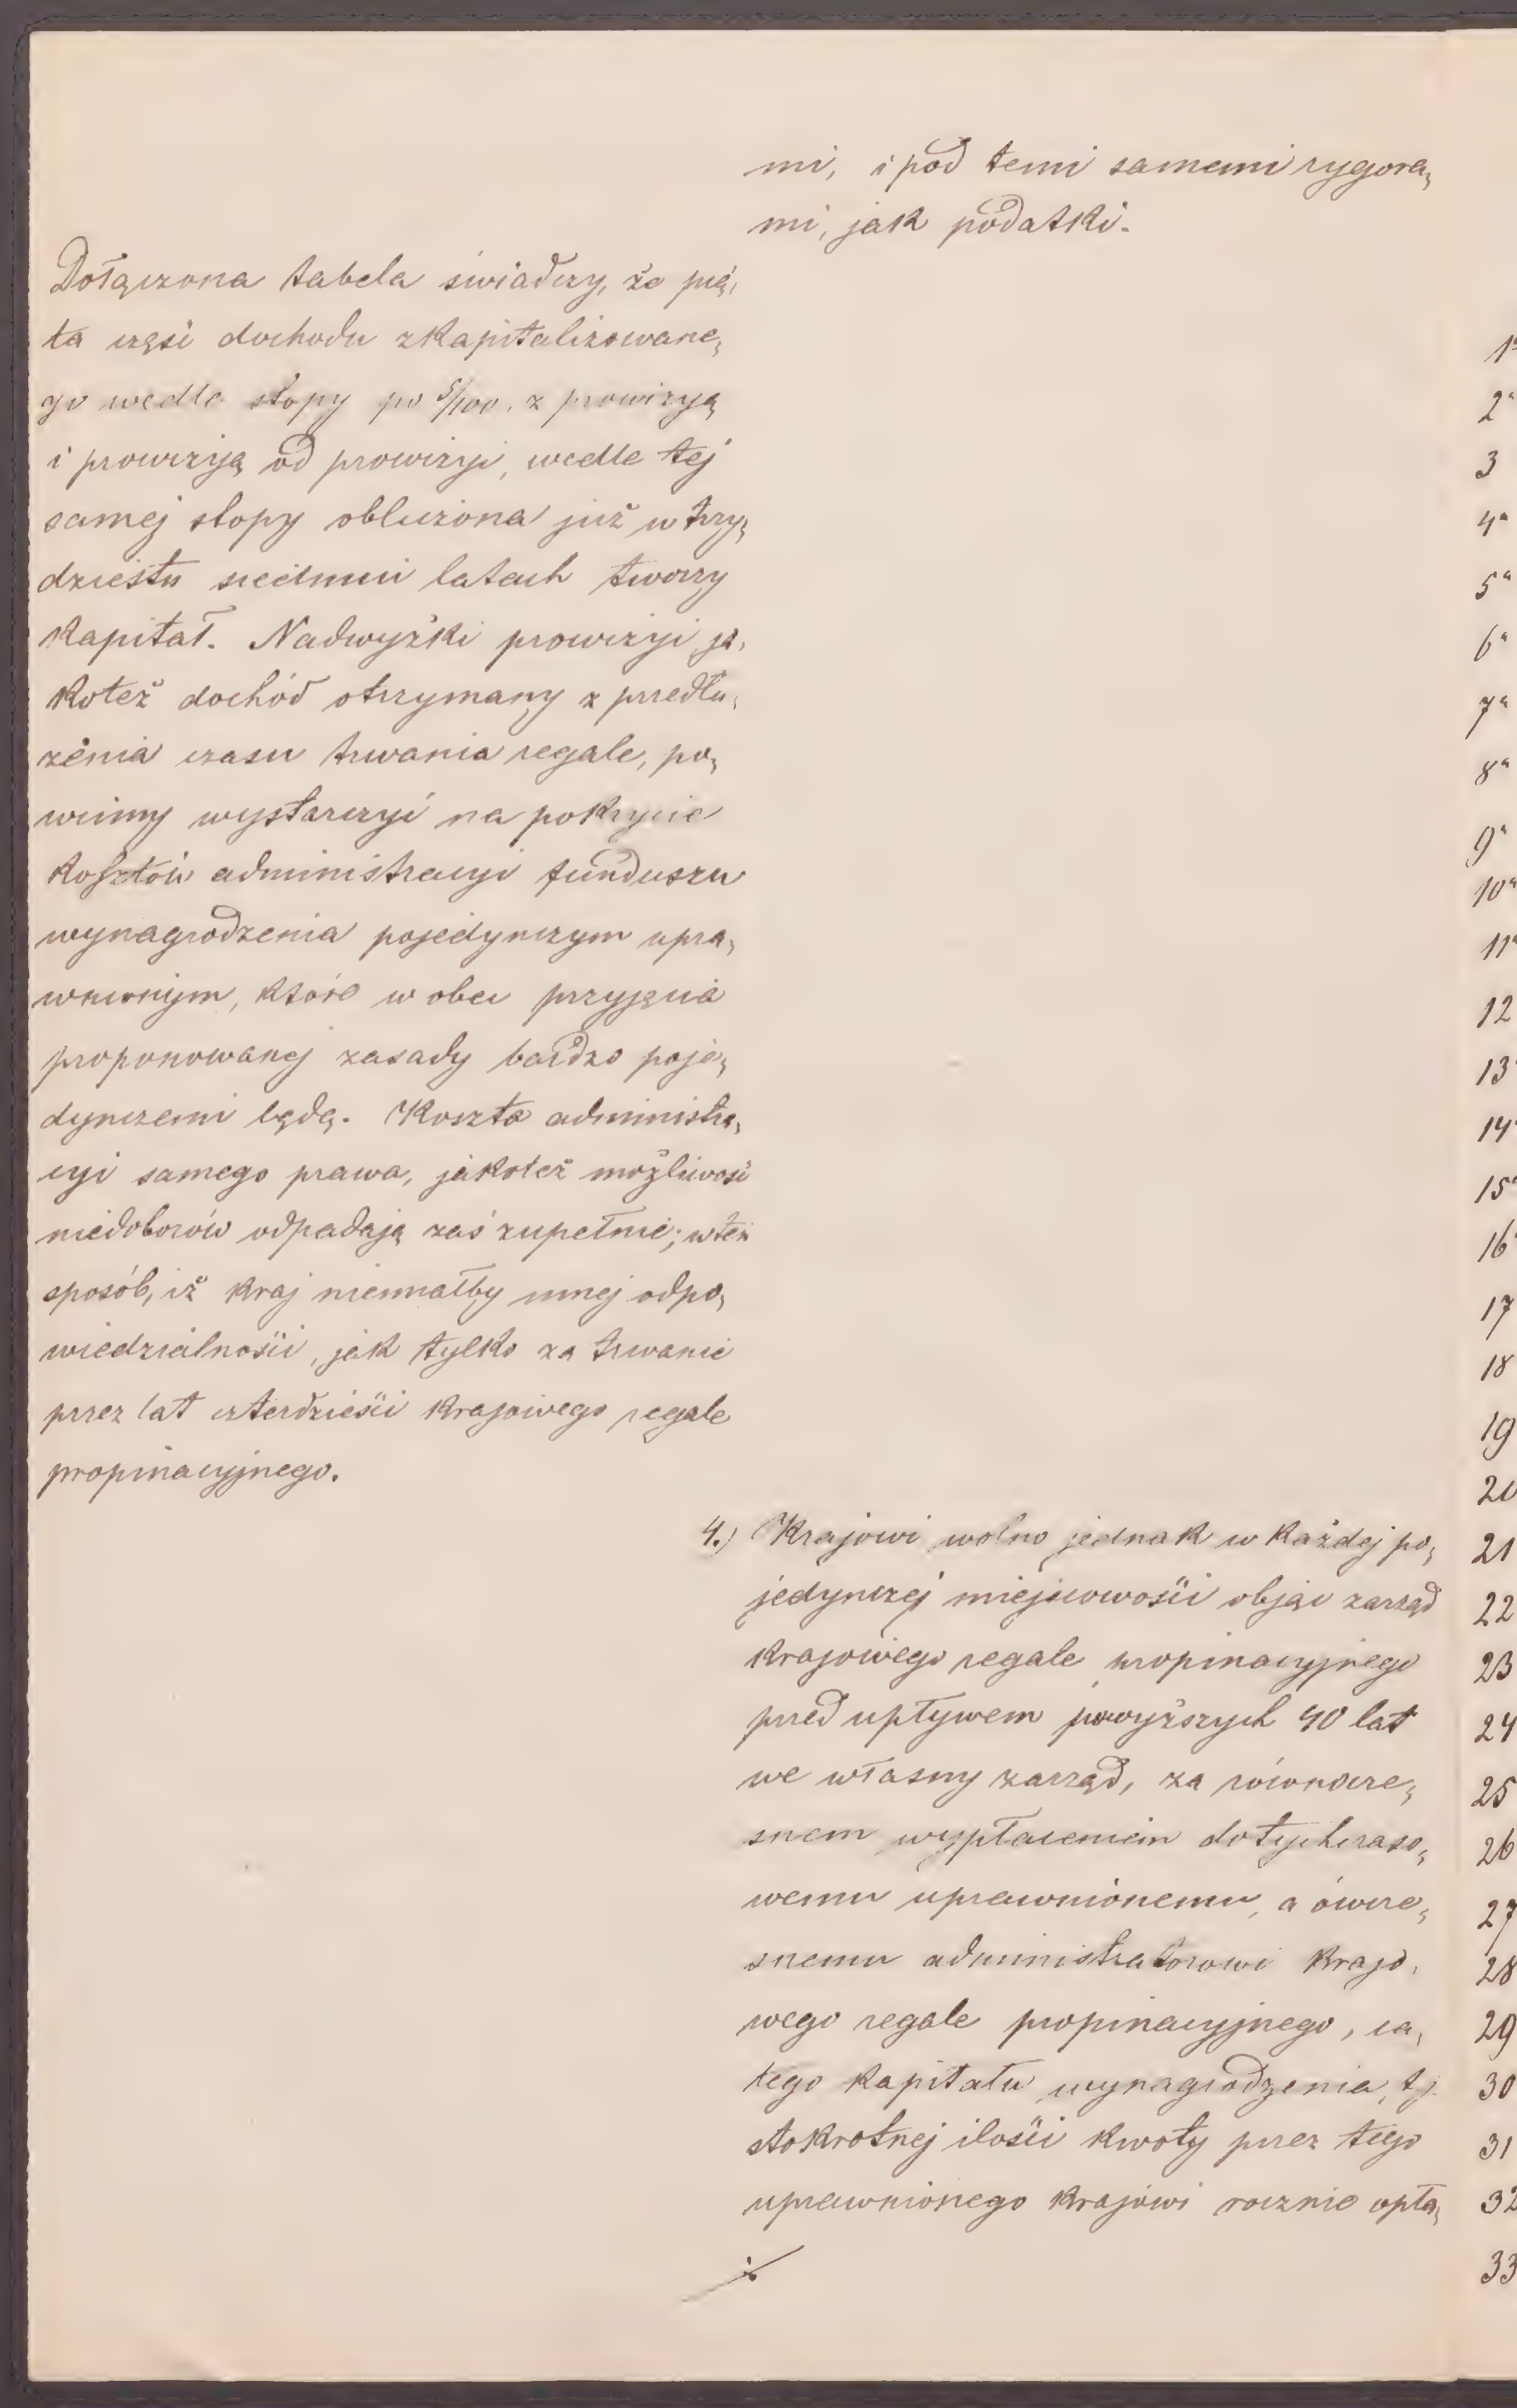 mi, i pod temi samemi rygora„
mi, jak podatki.
Dołączona tabela świadczy, że pią„
ta część dochodu zkapitalizowane„
go wedle stopy po 5/100, z prowizyą
i prowizyą od prowizyi, wedle tej
samej stopy obliczona już w trzy„
dziestu siedmiu latach tworzy
Kapitał. Nadwyżki prowizyi ja„
koteż dochód otrzymany z przedłu„
żenia czasu trwania regale, po„
winny wystarczyć na pokrycie
kosztów administracyi funduszu
wynagrodzenia pojedynczym upra„
wnionym, które wobec przyjęcia
proponowanej zasady bardzo poje„
dynczemi będą. Koszta administra„
cyi samego prawa, jakoteż możliwość
niedoborów odpadają zaś zupełnie; w ten
sposób, iż kraj niemałby innej odpo„
wiedzialności, jak tylko za trwanie
przez lat czterdzieści krajowego regale
propinacyjnego.
4.) Krajowi wolno jednak w każdej po„
jedynczej miejscowości objąć zarząd
krajowego regale propinacyjnego
przed upływem powyższych 40 lat
we własny zarząd, za równocze„
snem wypłaceniem dotychczaso„
wemu uprawnionemu, a ówcze„
snemu administratorowi krajo„
wego regale propinacyjnego, ca„
łego kapitału wynagrodzenia, t.j.
stokrotnej ilości kwoty przez tego
uprawnionego krajowi rocznie opła„
./.
1
2
3
4
5
6
7
8
9
10
11
12
13
14
15
16
17
18
19
20
21
22
23
24
25
26
27
28
29
30
31
32
33